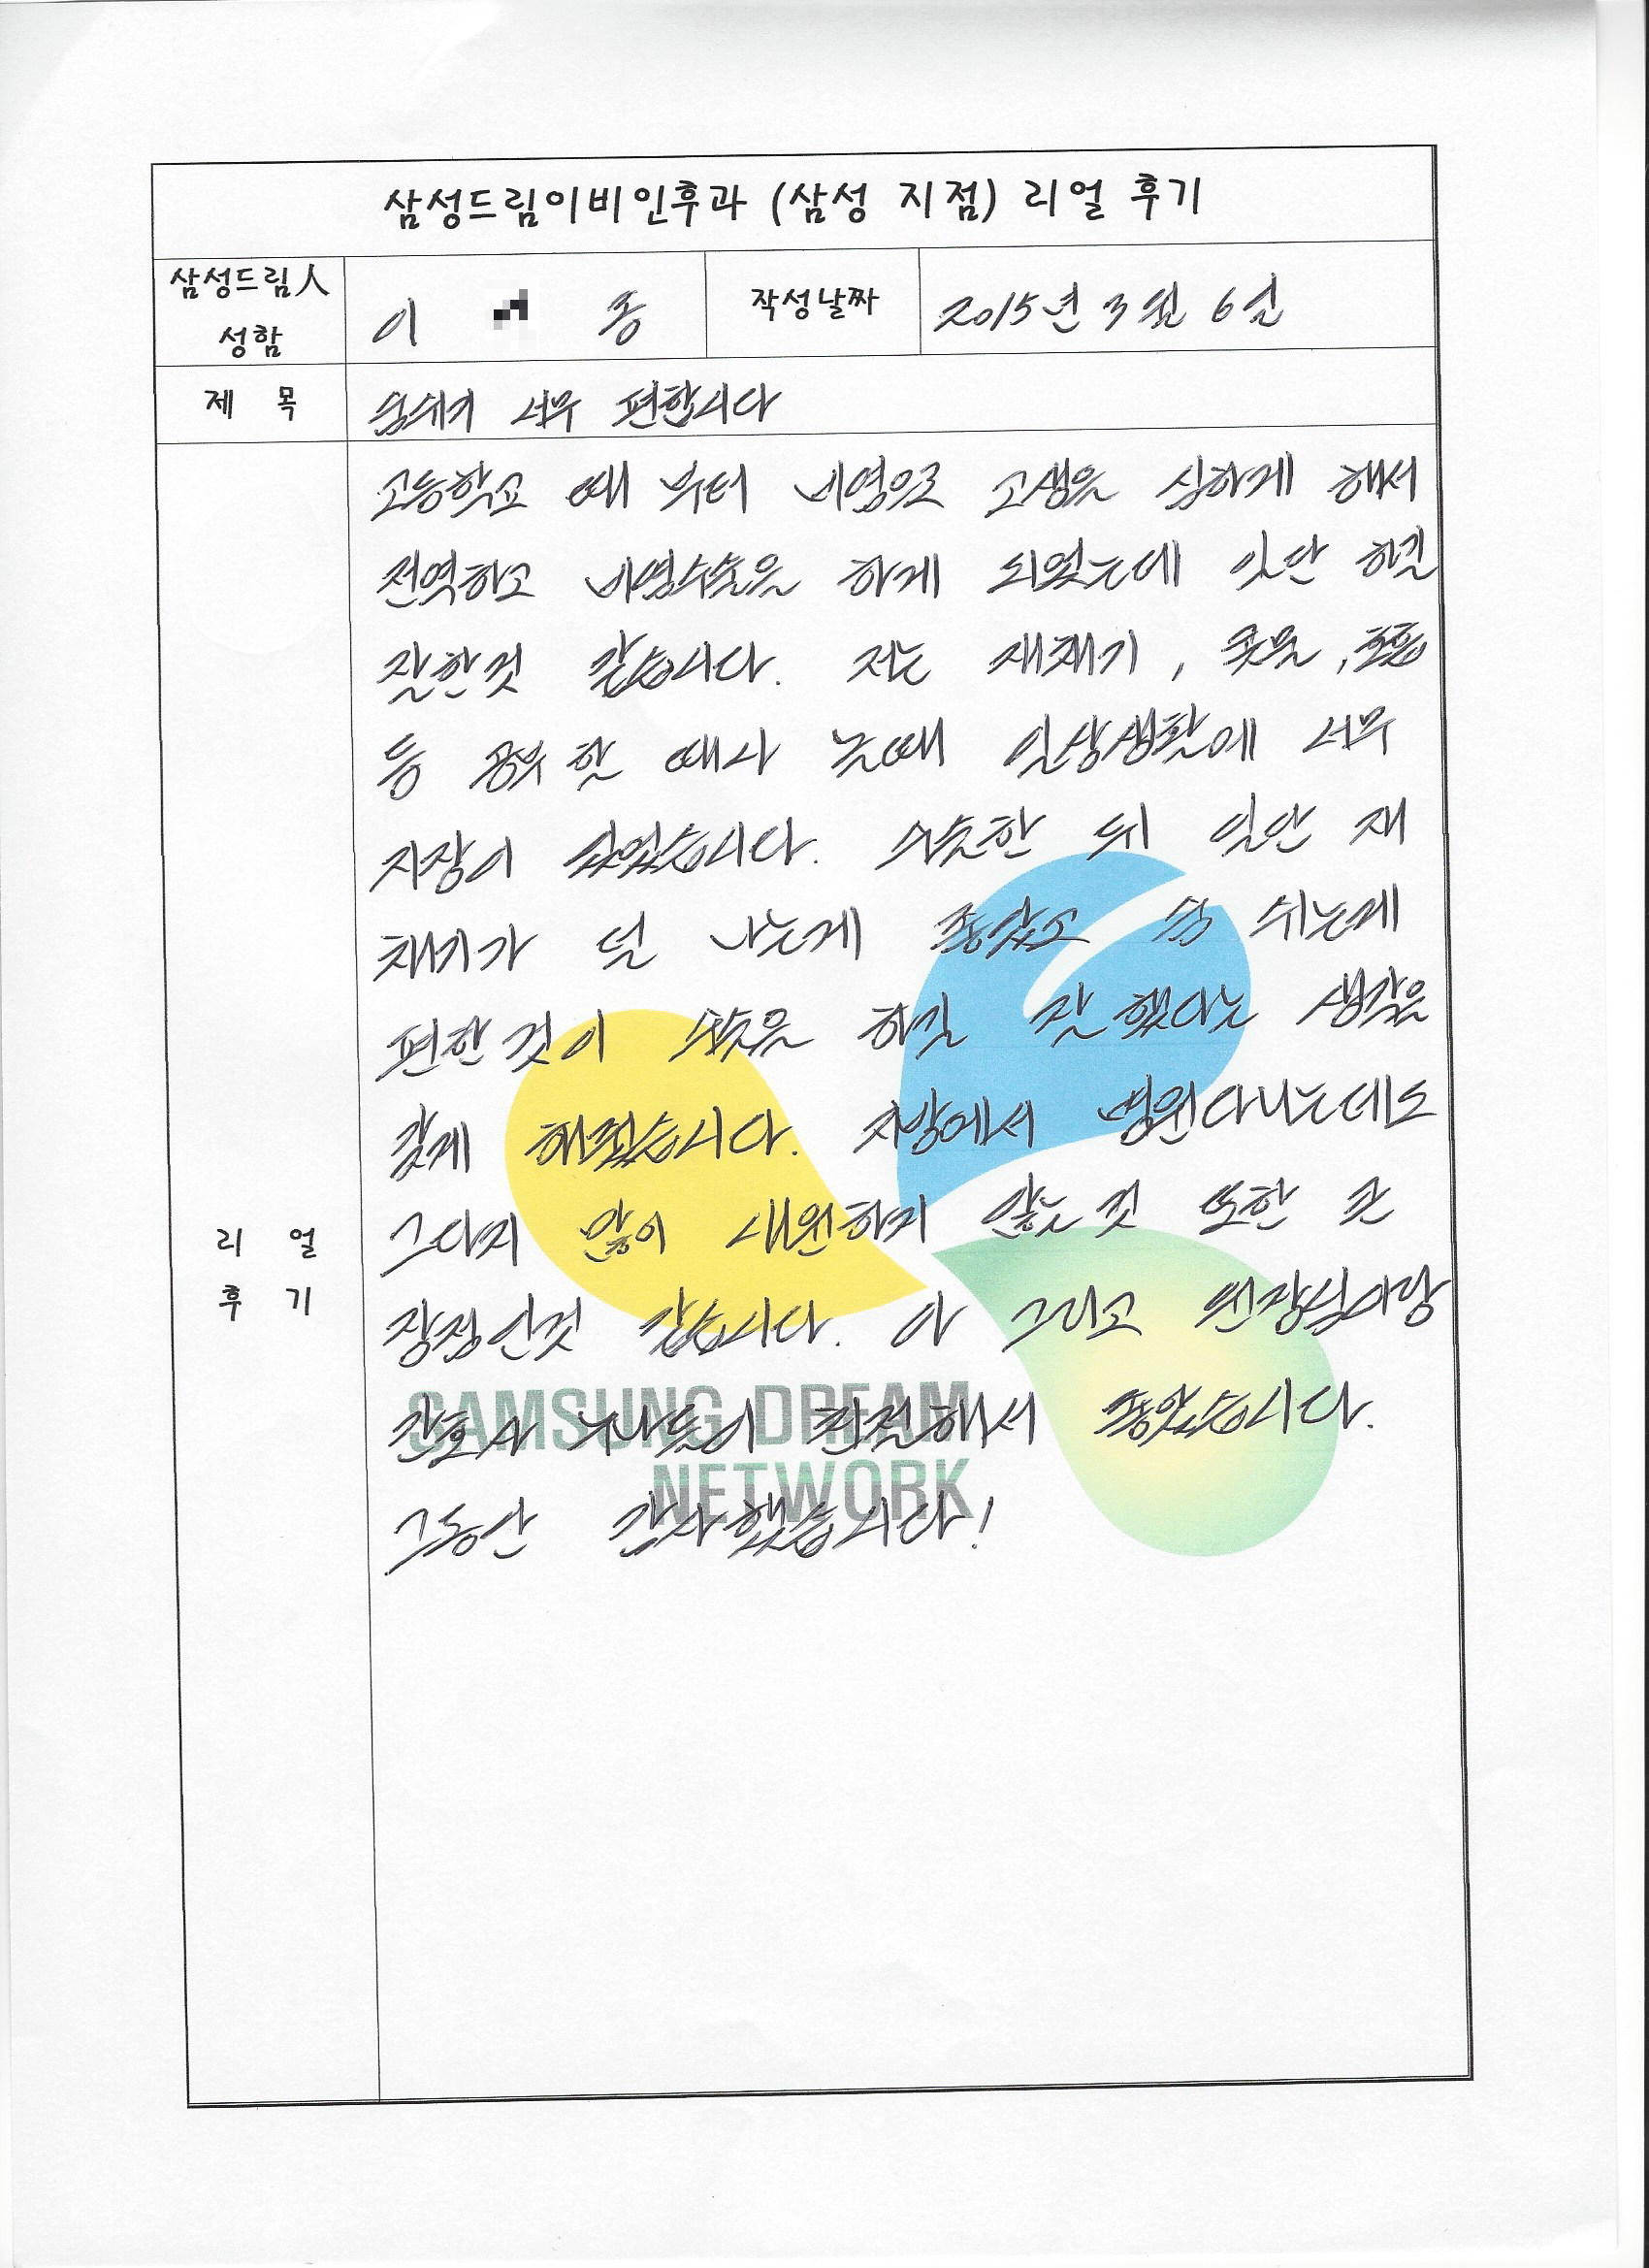 삼성드림이비인후과 (삼성 지점) 리얼 후기
삼성드림人
성함
이 종
작성날짜
2015년 3월 6일
제 목
숨쉬기 너무 편합니다
고등학교 때 부터 비염으로 고생을 심하게 해서
전역하고 비염수술을 하게 되었는데 일단 하길
잘한것 같습니다. 저는 재채기, 콧물,
등 공부 할 때나 놀때 일상생활에 너무
지장이 있었습니다. 수술한 뒤 일단 재
채기가 덜 나는게 좋았고 숨 쉬는게
편한것이 수술을 하길 잘 했다는 생각을
갖게 해줬습니다. 지방에서 병원다니는데도
그다지 많이 내원하지 않는 것 또한 큰
장점인것 같습니다. 아 그리고 원장님이랑
간호사 누나들이 친절해서 좋았습니다.
그동안 감사했습니다!
리 얼
후 기
SAMSUNG DREAM
NETWORK